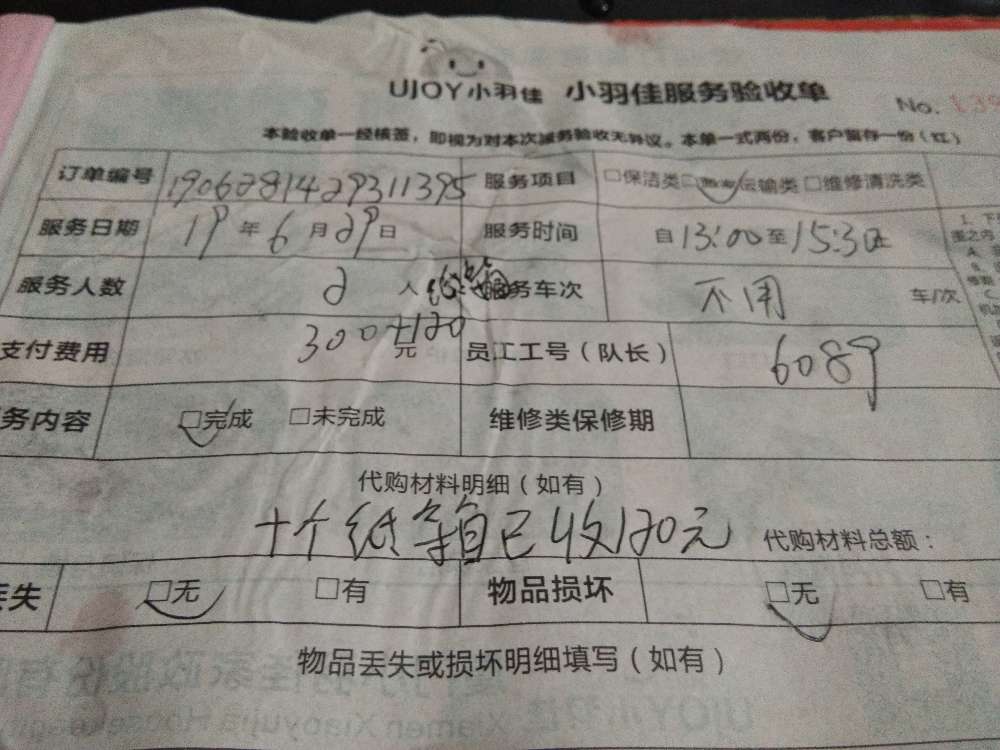 UJOY小羽佳 小羽佳服务验收单 No.
本验收单一经核签，即视为对本次服务验收无异议。本单一式两份，客户留存一份（红）
订单编号 1906281429311395 服务项目 □保洁类 运输类 □维修清洗类
服务日期 19年6月29日 服务时间 自13:00至15:30止
服务人数 2人 服务车次 不用 车/次
支付费用 300+120元 员工工号（队长） 6089
务内容 □完成 □未完成 维修类保修期
代购材料明细（如有）
十个纸箱已收120元 代购材料总额：
丢失 □无 □有 物品损坏 □无 □有
物品丢失或损坏明细填写（如有）